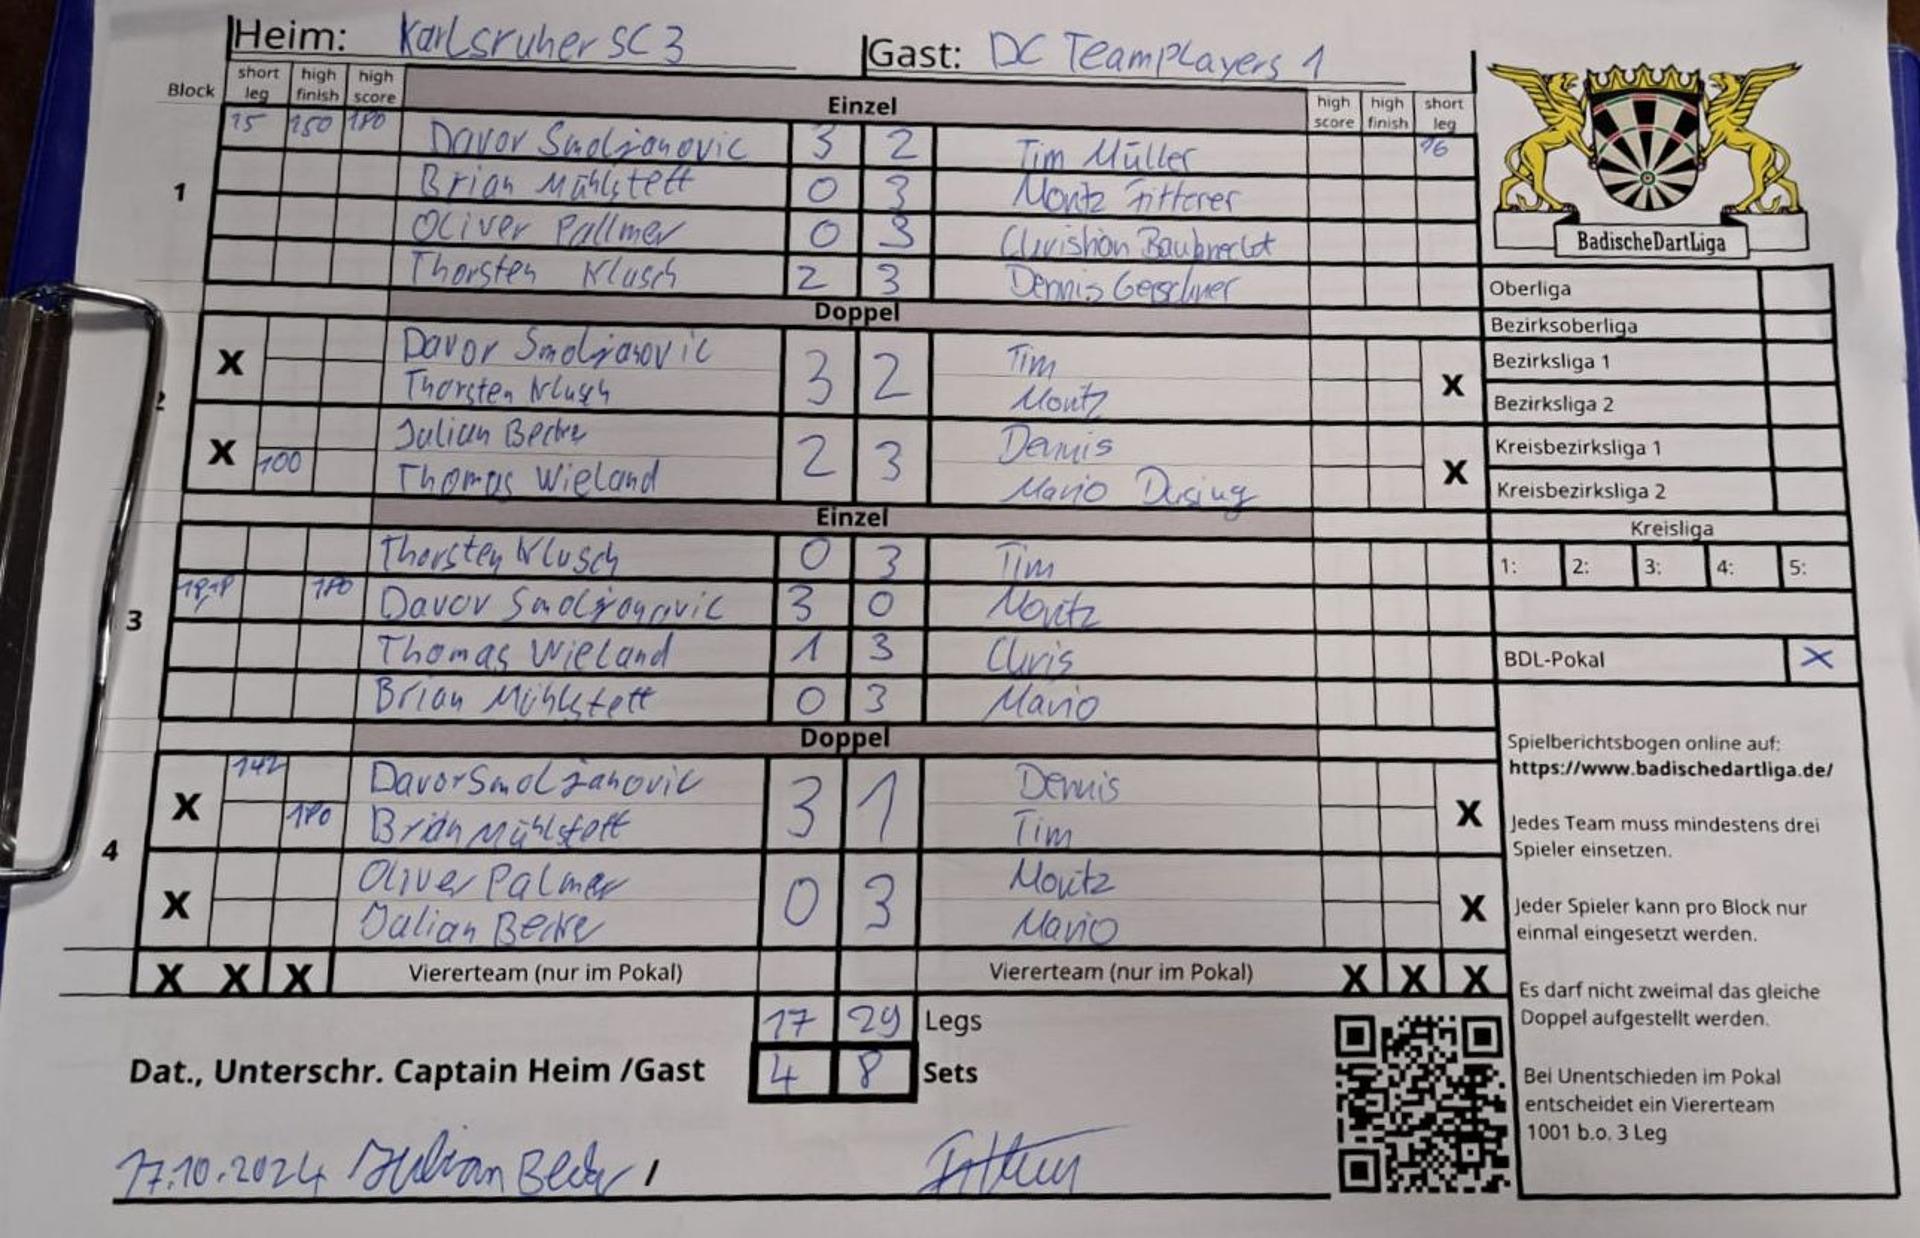 Heim: Karlsruher SC 3 Gast: DC TeamPlayers 1
Block short leg high finish high score Einzel high score high finish short leg
15 150 180 Davor Smoljanovic 3 2 Tim Müller 16
1 Brian Mühlstett 0 3 Moritz Fitterer
Oliver Pallmer 0 3 Christian
Thorsten Klusch 2 3 Dennis
BadischeDartLiga
Oberliga
Doppel
Bezirksoberliga
X Davor Smoljanovic 3 2 Tim X
Thorsten Klusch Moritz
Bezirksliga 1
Bezirksliga 2
X Julian Becker 2 3 Dennis X
100 Thomas Wieland Mario Düsing
Kreisbezirksliga 1
Kreisbezirksliga 2
Einzel
Kreisliga
1: 2: 3: 4: 5:
Thorsten Klusch 0 3 Tim
3 18,18 180 Davor Smoljanovic 3 0 Moritz
Thomas Wieland 1 3 Chris
Brian Mühlstett 0 3 Mario
BDL-Pokal X
Doppel
X 142 Davor Smoljanovic 3 1 Dennis X
180 Brian Mühlstett Tim
4
X Oliver Palmer 0 3 Moritz X
Julian Becker Mario
X X X Viererteam (nur im Pokal) Viererteam (nur im Pokal) X X X
17 29 Legs
Dat., Unterschr. Captain Heim /Gast 4 8 Sets
17.10.2024 Julian Becker /
Spielberichtsbogen online auf:
https://www.badischedartliga.de/
Jedes Team muss mindestens drei
Spieler einsetzen.
Jeder Spieler kann pro Block nur
einmal eingesetzt werden.
Es darf nicht zweimal das gleiche
Doppel aufgestellt werden.
Bei Unentschieden im Pokal
entscheidet ein Viererteam
1001 b.o. 3 Leg